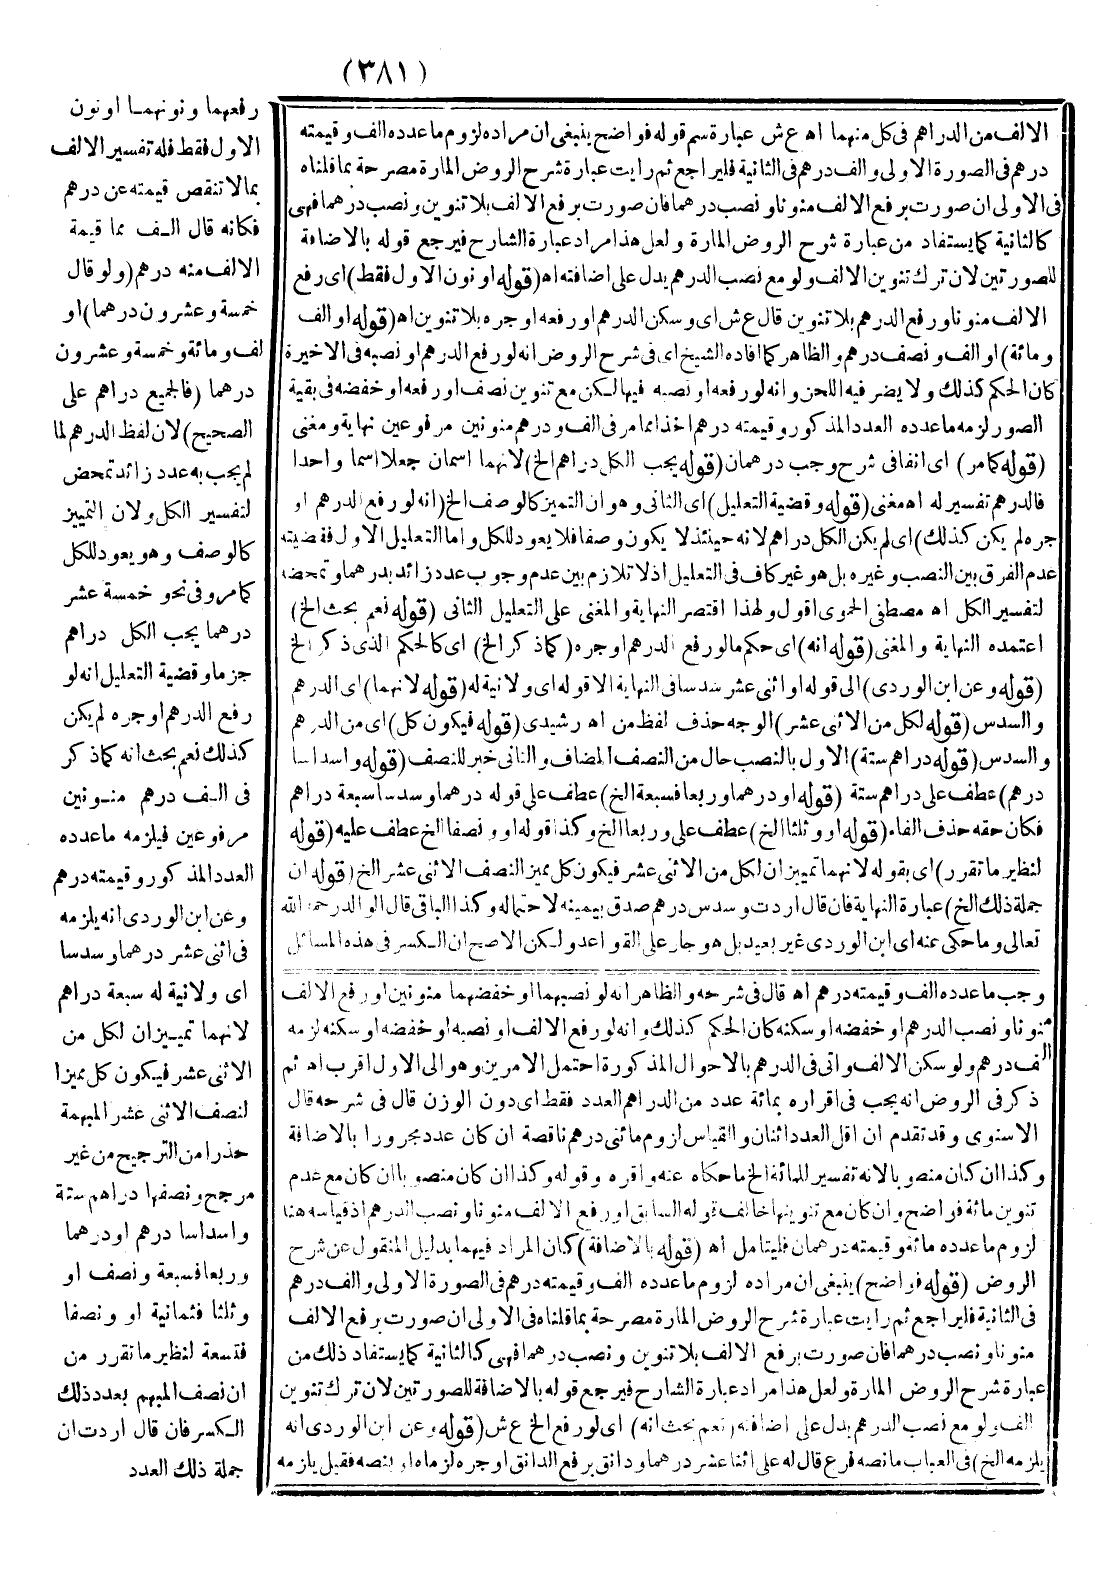 (٣٨١)
الالف من الدراهم فى كل منهما اه ع ش عبارة سم قوله فواضح ينبغى ان مراده لزوم ما عدده الف وقيمته
درهم فى الصورة الاولى والف درهم فى الثانية فليراجع ثم رايت عبارة شرح الروض المارة مصرحة بما قلناه
فى الاولى ان صورت برفع الالف منونا ونصب درهما فان صورت برفع الالف بلا تنوين ونصب درهما فهى
كالثانية كما يستفاد من عبارة شرح الروض المارة ولعل هذا مراد عبارة الشارح فيرجع قوله بالاضافة
للصورتين لان ترك تنوين الالف ولو مع نصب الدرهم يدل على اضافته اه (قوله او نون الاول فقط) اى رفع
الالف منونا ورفع الدرهم بلا تنوين قال ع ش اى وسكن الدرهم او رفعه او جره بلا تنوين اه (قوله او الف
ومائة) او الف ونصف درهم والظاهر كما افاده الشيخ اى فى شرح الروض انه لو رفع الدرهم او نصبه فى الاخيرة
كان الحكم كذلك ولا يضر فيه اللحن وانه لو رفعه او نصبه فيها لكن مع تنوين نصف او رفعه او خفضه فى بقية
الصور لزمه ما عدده العدد المذكور وقيمته درهم اخذا مما مر فى الف ودرهم منونين مرفوعين نهاية ومغنى
(قوله كما مر) اى انفا فى شرح وجب درهمان (قوله يجب الكل دراهم الخ) لانهما اسمان جعلا اسما واحدا
فالدرهم تفسير له اه مغنى (قوله وقضية التعليل) اى الثانى وهو ان التميز كالوصف الخ (انه لو رفع الدرهم او
جره لم يكن كذلك) اى لم يكن الكل دراهم لانه حينئذ لا يكون وصفا فلا يعود للكل واما التعليل الاول فقضيته
عدم الفرق بين النصب وغيره بل هو غير كاف فى التعليل اذ لا تلازم بين عدم وجوب عدد زائد بدرهما وتمحضه
لتفسير الكل اه مصطفى الحموى اقول ولهذا اقتصر النهاية والمغنى على التعليل الثانى (قوله نعم بحث الخ)
اعتمده النهاية والمغنى (قوله انه) اى حكم ما لو رفع الدرهم او جره (كما ذكر الخ) اى كالحكم الذى ذكر الخ
(قوله وعن ابن الوردى) الى قوله او اثنى عشر شدسا فى النهاية الا قوله اى ولا نية له (قوله لانهما) اى الدرهم
والسدس (قوله لكل من الاثنى عشر) الوجه حذف لفظ من اه رشيدى (قوله فيكون كل) اى من الدرهم
والسدس (قوله دراهم ستة) الاول بالنصب حال من النصف المضاف والثانى خبر للنصف (قوله واسداسا
درهم) عطف على دراهم ستة (قوله او درهما وربعا فسبعة الخ) عطف على قوله درهما وسدسا سبعة دراهم
فكان حقه حذف الفاء (قوله او وثلثا الخ) عطف على وربعا الخ وكذا قوله او ونصفا الخ عطف عليه (قوله
لنظير ما تقرر) اى بقوله لانهما تمييزان لكل من الاثنى عشر فيكون كل مميز النصف الاثنى عشر الخ (قوله ان
جملة ذلك الخ) عبارة النهاية فان قال اردت وسدس درهم صدق بيمينه لاحتماله وكذا الباقى قال الوالد رحمه الله
تعالى وما حكى عنه اى ابن الوردى غير بعيد بل هو جار على القواعد ولكن الاصح ان الكسر فى هذه المسائل
وجب ما عدده الف وقيمته درهم اه قال فى شرحه والظاهر انه لو نصبهما او خفضهما منونين او رفع الالف
منونا ونصب الدرهم او خفضه او سكنه كان الحكم كذلك وانه لو رفع الالف او نصبه او خفضه او سكنه لزمه
الف درهم ولو سكن الالف واتى فى الدرهم بالاحوال المذكورة احتمل الامرين وهو الى الاول اقرب اه ثم
ذكر فى الروض انه يجب فى اقراره بمائة عدد من الدراهم العدد فقط اى دون الوزن قال فى شرحه قال
الاسنوى وقد تقدم ان اقل العدد اثنان والقياس لزوم مائتى درهم ناقصة ان كان عدد مجرورا بالاضافة
وكذا ان كان منصوبا لانه تفسير للمائة الخ ما حكاه عنه واقره وقوله وكذا ان كان منصوبا ان كان مع عدم
تنوين مائة فواضح وان كان مع تنوينها خالف قوله السابق او رفع الالف منونا ونصب الدرهم اذ قياسه هنا
لزوم ما عدده مائة وقيمته درهمان فليتامل اه (قوله بالاضافة) كان المراد فيهما بدليل المنقول عن شرح
الروض (قوله فواضح) ينبغى ان مراده لزوم ما عدده الف وقيمته درهم فى الصورة الاولى والف درهم
فى الثانية فليراجع ثم رايت عبارة شرح الروض المارة مصرحة بما قلناه فى الاولى ان صورت برفع الالف
منونا ونصب درهما فان صورت برفع الالف بلا تنوين ونصب درهما فهى كالثانية كما يستفاد ذلك من
عبارة شرح الروض المارة ولعل هذا مراد عبارة الشارح فيرجع قوله بالاضافة للصورتين لان ترك تنوين
الف ولو مع نصب الدرهم يدل على اضافته (نعم بحث انه) اى لو رفع الخ ع ش (قوله وعن ابن الوردى انه
يلزمه الخ) فى العباب ما نصه فرع قال له على اثنا عشر درهما ودانق برفع الدانق او جره لزماه او بنصبه فقيل يلزمه
رفعهما ونونهما او نون
الاول فقط فله تفسير الالف
بما لا تنقص قيمته عن درهم
فكانه قال الف مما قيمة
الالف منه درهم (ولو قال
خمسة وعشرون درهما) او
الف ومائة وخمسة وعشرون
درهما (فالجميع دراهم على
الصحيح) لان لفظ الدرهم لما
لم يجب به عدد زائد تمحض
لتفسير الكل ولان التمييز
كالوصف وهو يعود للكل
كما مر وفى نحو خمسة عشر
درهما يجب الكل دراهم
جزما وقضية التعليل انه لو
رفع الدرهم او جره لم يكن
كذلك نعم بحث انه كما ذكر
فى الف درهم منونين
مرفوعين فيلزمه ما عدده
العدد المذكور وقيمته درهم
وعن ابن الوردى انه يلزمه
فى اثنى عشر درهما وسدسا
اى ولا نية له سبعة دراهم
لانهما تمييزان لكل من
الاثنى عشر فيكون كل مميزا
لنصف الاثنى عشر المبهمة
حذرا من الترجيح من غير
مرجح ونصفها دراهم ستة
واسداسا درهم او درهما
وربعا فسبعة ونصف او
وثلثا فثمانية او ونصفا
فتسعة لنظير ما تقرر من
ان نصف المبهم بعدد ذلك
الكسر فان قال اردت ان
جملة ذلك العدد